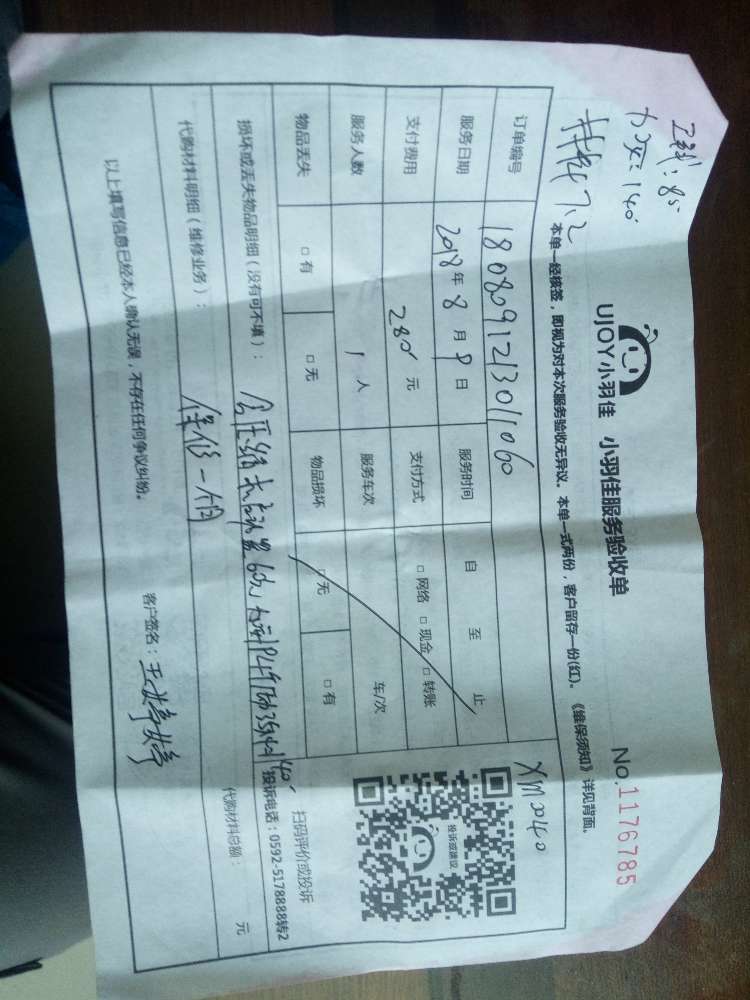 工钱:85
力灰:140
UJOY小羽佳 小羽佳服务验收单
No.1176785
本单一经核签，即视为对本次服务验收无异议。本单一式两份，客户留存一份(红)。《维保须知》详见背面。
订单编号 180809121301060 XM2040
服务日期 2018年8月9日 服务时间 自 至 止
支付费用 280元 支付方式 □网络 □现金 □转账
服务人数 1人 服务车次 车/次
物品丢失 □有 □无 物品损坏 □无 □有
投诉或建议
扫码评价或投诉
投诉电话：0592-5178888转2
损坏或丢失物品明细（没有可不填）：
代购材料明细（维修业务）： 保修一个月
代购材料总额： 元
以上填写信息已经本人确认无误，不存在任何争议纠纷。
客户签名：王婷婷